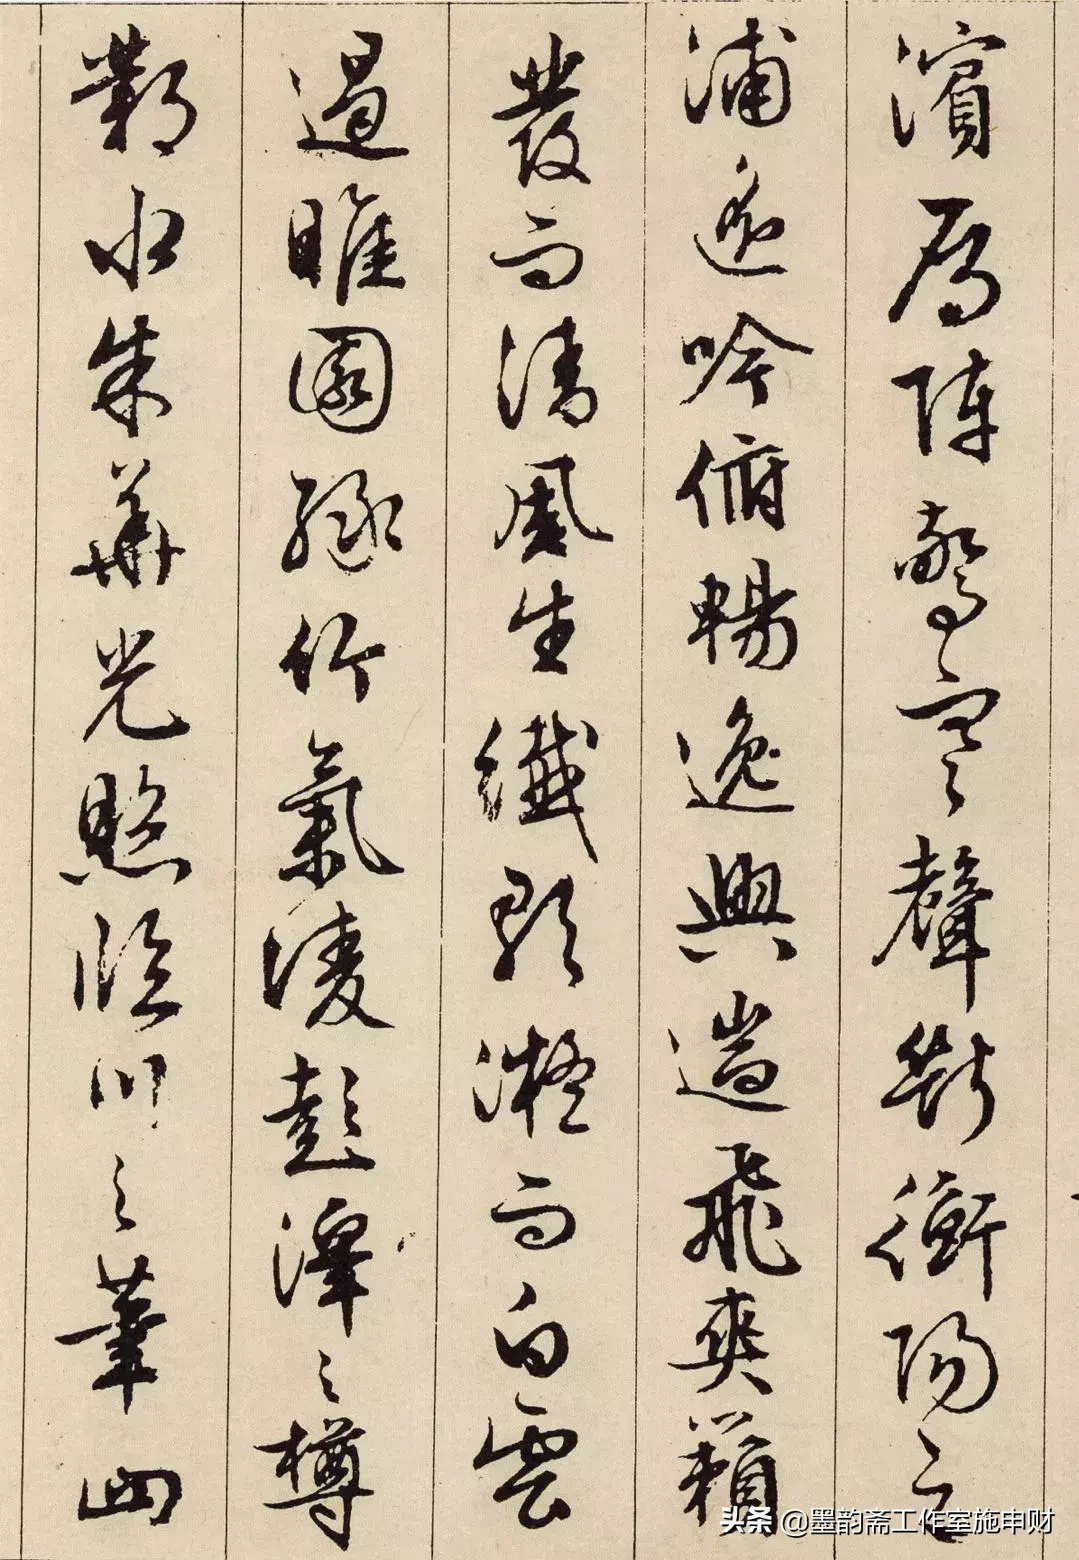 濱雁陣驚寒聲斷衡陽之
浦遥吟俯暢逸興遄飛爽籟
發而清風生纖歌凝而白雲
遏睢園緑竹氣凌彭澤之樽
鄴水朱華光照臨川之筆四
头条 @墨韵斋工作室施申财